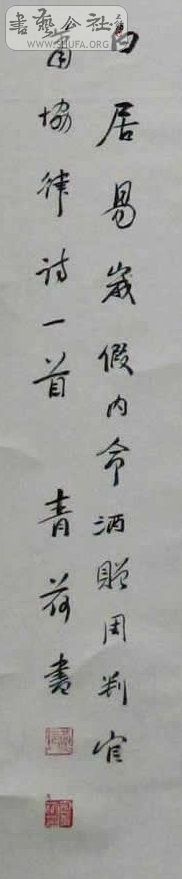 白居易歲假內命酒贈周判官
蕭協律诗一首 青荷書
書藝公社
WWW.SHUFA.ORG